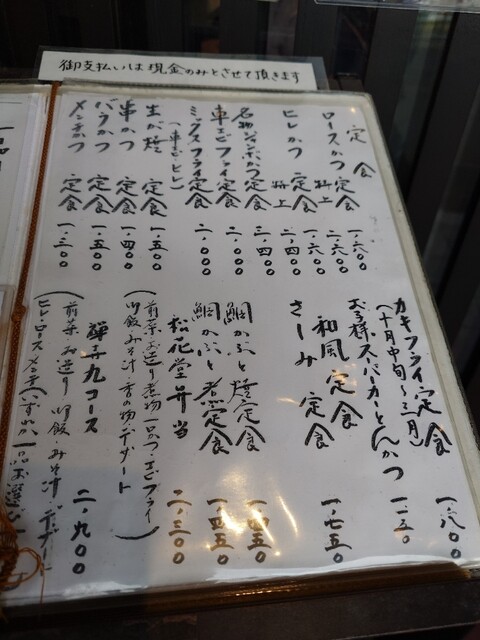 御支払いは現金のみとさせて頂きます
定食
ロースかつ定食 一、六〇〇
特上 二、六〇〇
ヒレかつ定食 一、六〇〇
特上 二、四〇〇
名物ジャンボかつ定食 三、四〇〇
車エビフライ定食 二、〇〇〇
ミックスフライ定食 二、〇〇〇
(車エビ・ヒレ)
生が焼定食 一、五〇〇
串かつ定食 一、四〇〇
バラかつ定食 一、五〇〇
メンチかつ定食 一、三〇〇
カキフライ定食 一、八〇〇
(十月中旬〜三月)
お子様スパーカーとんかつ 一、一二〇
和風定食 一、七五〇
さしみ定食
鯛かぶと焼定食 一、四五〇
鯛かぶと煮定食 一、四五〇
松花堂弁当 二、三〇〇
(前菜 お造り 煮物 一口かつ エビフライ
御飯 みそ汁 香の物 デザート)
コース 二、九〇〇
(前菜 お造り 御飯 みそ汁 デザート
ヒレ・ロース・メンチいずれか一品お選び